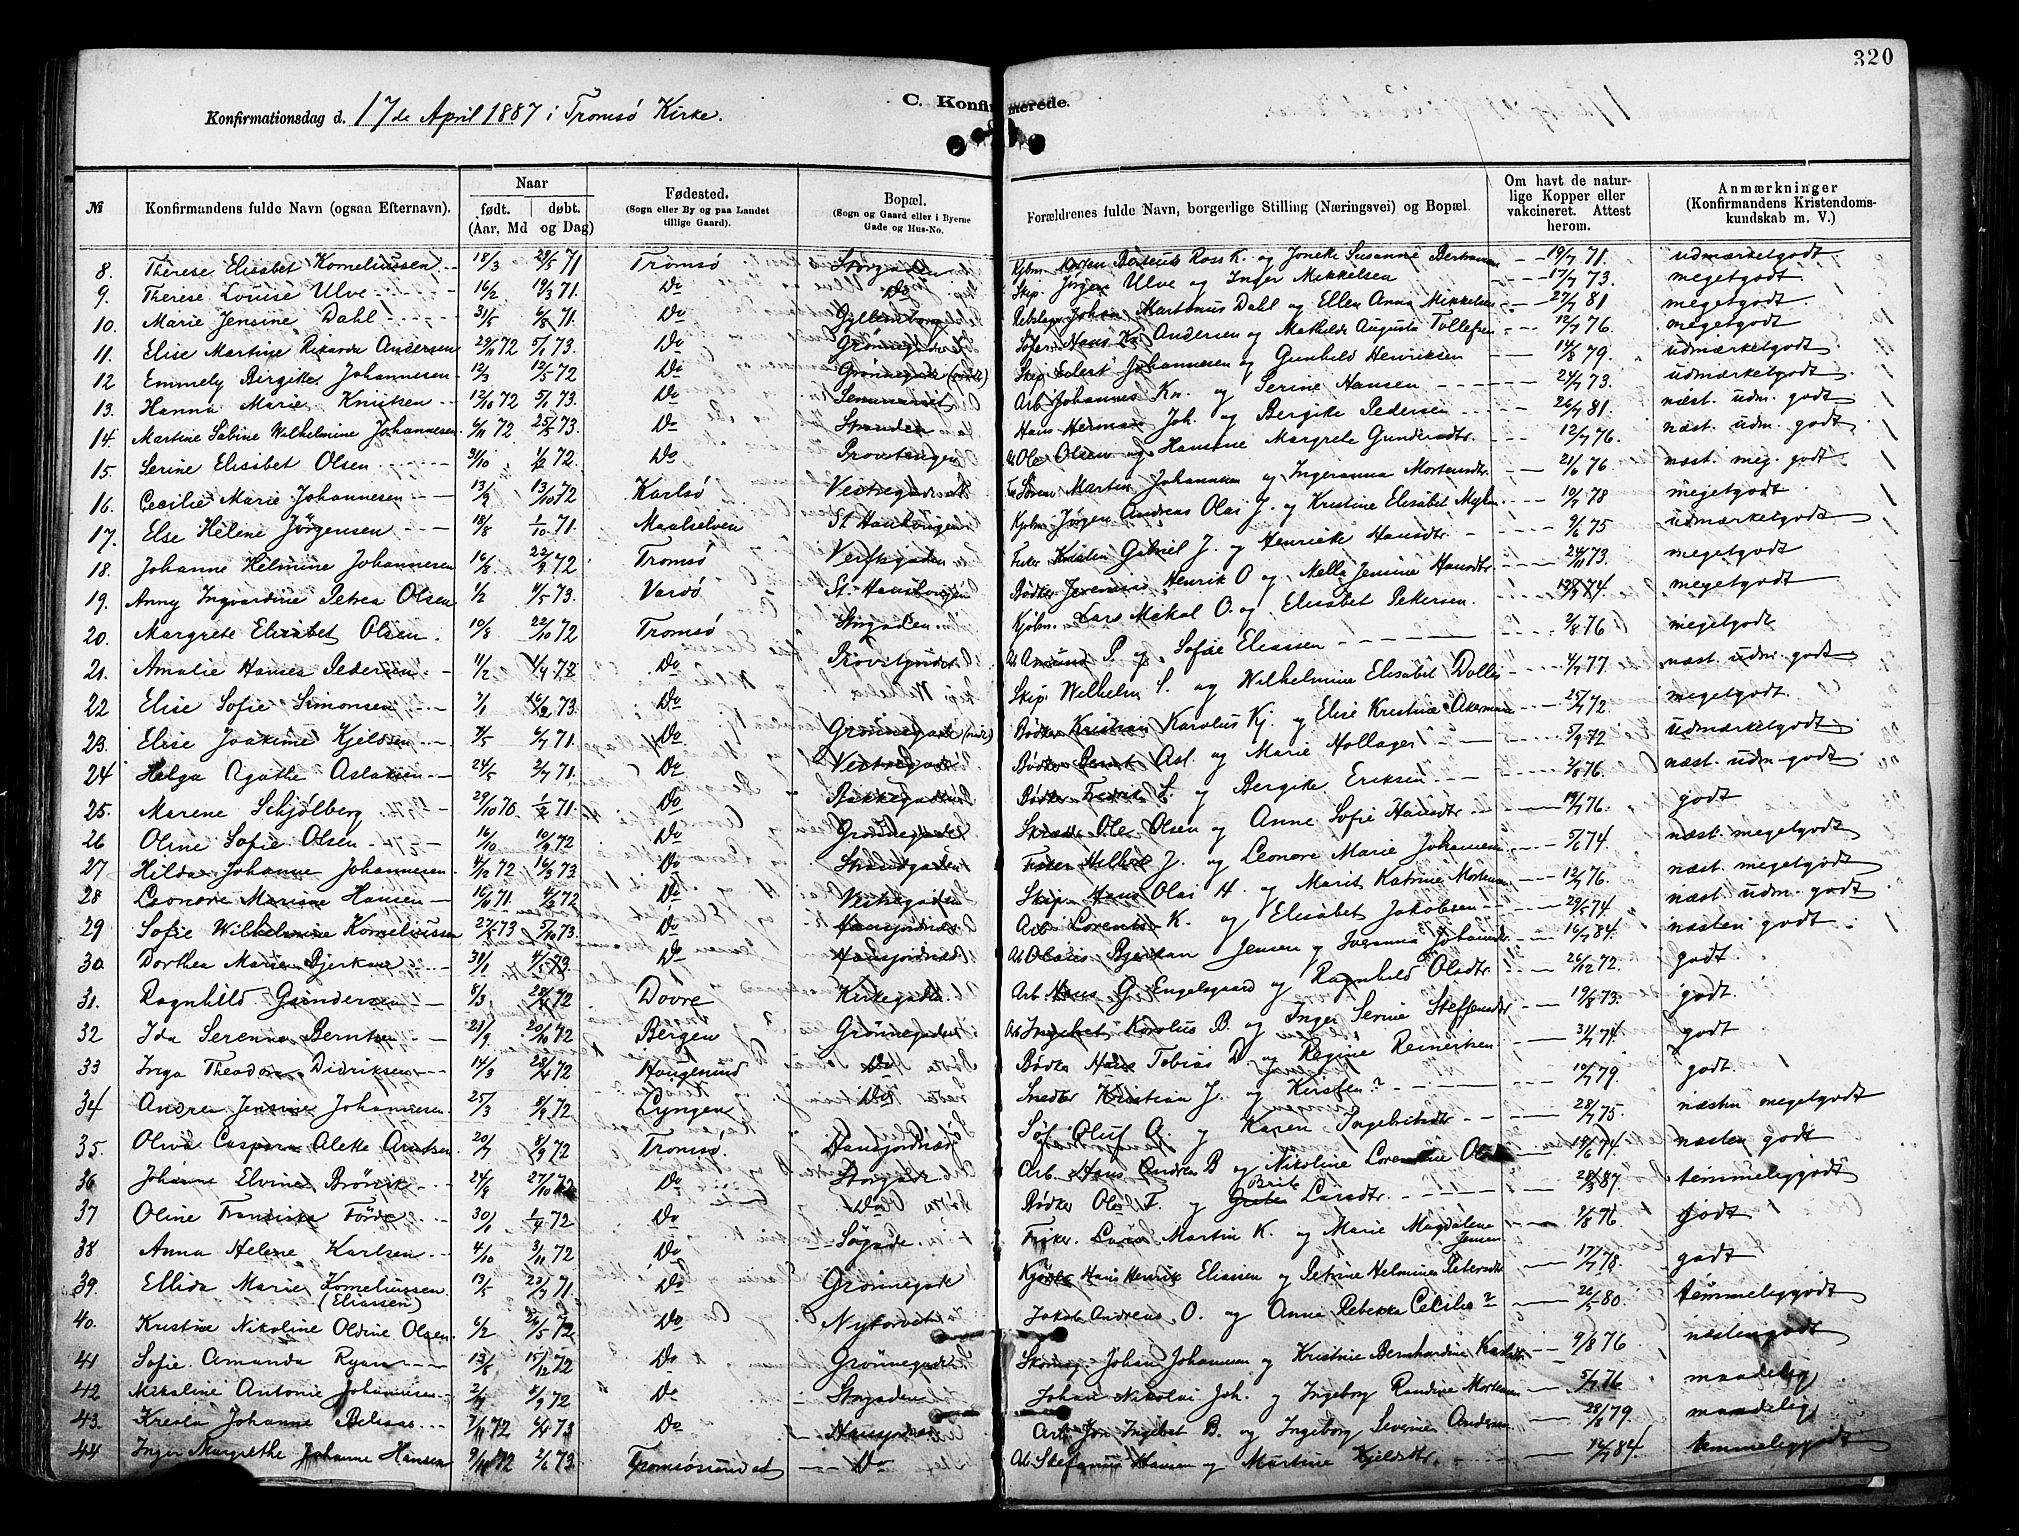 320
C. Konfirmerede.
Konfirmationsdag d. 17de April 1887 i Tromsø Kirke.
№ Konfirmandens fulde Navn (ogsaa Efternavn). Naar født. (Aar, Md døbt. og Dag) Fødested. (Sogn eller By og paa Landet tillige Gaard). Bopæl. (Sogn og Gaard eller i Byerne Gade og Hus-No. Forældrenes fulde Navn, borgerlige Stilling (Næringsvei) og Bopæl. Om havt de naturlige Kopper eller vakcineret. Attest herom. Anmærkninger (Konfirmandens Kristendomskundskab m. V.)
8. Therese Elisabet Korneliussen 18/3 28/5 71 Tromsø Storgaden Kjbm. Berteus Ross K. og Joneke Susanne 19/7 71 udmærketgodt
9. Therese Louise Ulve 16/2 19/3 71. Do Do Skip. Jørgen Ulve og Inger Mikkelsen 17/7 73. megetgodt
10. Marie Jensine Dahl 31/5 6/8 71. Do Johan Martinus Dahl og Ellen Anna Mikkelsen 27/7 81 megetgodt
11. Elise Martine Rikarda Andersen 29/11 72 5/1 73. Do Grønnegade Hans Kr. Andersen og Mathilde Augusta Tollefsen 12/7 76. megetgodt
12 Emmely Bergitte Johannesen 12/3 12/5 72 Do Grønnegade Skip. Edest Johannesen og Gunhild Henriksen 14/8 79. udmærketgodt
13. Hanna Marie Knutsen 12/10 72 5/1 73. Do Seminariet Arb Johannes Kn. og Serine Hansen 24/7 73. udmærketgodt
14. Martine Sabine Wilhelmine Johannesen 6/11 72 25/5 73. Do Stranden Hans Herman Joh. og Bergitte Pedersen 26/7 81. næst. udm. godt
15. Serine Elisabet Olsen 31/10 1/12 72. Do Provstengen Ole Olsen og Hansine Margrete Gundersdtr. 12/7 76. næst. udm. godt
16. Cecilie Marie Johannesen 13/9 13/10 72 Karlsø Vestregade Søren Marten Johannesen og Ingeranna Mortensdtr. 21/6 76 næst. meg. godt
17. Else Helene Jørgensen 18/8 1/10 71. Maalselven St Hanshaugen Kjøbm. Jørgen Andreas Olai J. og Kristine Elisabet 10/7 78 megetgodt
18. Johanne Helmine Johannesen 16/6 22/9 72 Tromsø Verftsgaden Gabriel J. og Henrikke Hansdtr. 9/6 75 udmærketgodt
19. Anny Ingvardine Petrea Olsen 1/2 4/5 73. Vardø St. Hanshaugen Bødker Jeremias Henrik O og Nella Jensine Hansdtr 24/11 73. megetgodt
20. Margrete Elisabet Olsen. 10/8 22/10 72 Tromsø Storgaden Kjøbm. Lars Mikal O. og Elisabet Petersen. 74 megetgodt
21. Amalie Hansea Pedersen 11/2 1/4 72 Do Amund P. og Sofie Eliassen 2/8 76 megetgodt
22 Elise Sofie Simonsen 7/1 16/2 73. Do Skip. Wilhelm S. og Wilhelmine Elisabet 4/7 77. næst. udm. godt
23. Elise Joakime Kjeldsen 7/5 6/7 71. Do Grønnegade Bødker Kristian Karolus Kj. og Elise Kristine Akerman 25/7 72. megetgodt
24 Helga Agathe Aslaksen 24/5 2/7 71. Do Vestregade Bødker Bernt Asl. og Marie Hollager 5/9 72 udmærketgodt
25. Marene Schjølberg 29/10 70 1/2 71. Do Bakkegaden Bødker Fredrik S. og Bergitte Eriksen 2/8 76. næst. udm. godt
26 Oline Sofie Olsen 16/10 10/9 72 Do Grønnegaden Ole Olsen og Anne Sofie Hansdtr 19/7 76. godt
27 Hilda Johanne Johannesen 4/12 72 16/3 73 Do Strandgaden J. og Leonore Marie Johansen 5/6 74. næst. megetgodt
28 Leonore Marine Hansen 16/10 71. 4/2 72 Do Skip. Hans Olai H. og Marit Katrine Mortensen 12/7 76. næst. megetgodt
29 Sofie Wilhelmine Korneliussen 27/5 73 5/10 73. Do Hansjordnæs Arb Lorents K. og Elisabet Jakobsen 29/5 74. næst. udm. godt
30. Dorthea Marie Bjerkan 31/1 4/5 73. Do Hansjordnæs Olaus Bjerkan Jensen og Johansdtr 16/7 84. næsten godt
31. Ragnhild Gundersen 8/3 28/4 72 Dovre Kirkegaden Arb Hans G. Engelsgaard og Ragnhild Olsdtr 26/12 72. godt.
32 Ida Serenna Berntsen 21/9 20/10 72 Bergen Grønnegaden Ingebret Karolus B. og Inger Serine Steffensdtr 19/8 73. godt.
33 Inga Theodora Didriksen 14/3 28/4 72 Haugesund Do Bødker Hans Tobias D. og Regine Reinertsen 31/7 74. godt
34 Andrea Jensine Johannesen 25/3 8/9 72 Lyngen Do Snedker Kristian J. og Kirsten? 10/7 79. godt
35. Oliva Caspara Alette Arntsen 20/7 8/9 72 Tromsø. Hansjordnæs Oluf A. og Karen Ingebretsdtr 28/7 75. næsten megetgodt
36 Johanne Elvine 24/9 27/10 72 Do Storgade Arb. Hans Andrea B og Nikoline 14/6 74 næsten godt
37 Oline Franciska Førde 30/1 1/4 72 Do Do Bødker Ole F. og Brite Larsdtr. 28/3 87. temmeliggodt
38 Anna Helene Karlsen 4/10 3/11 72 Do Søgade Martin K. og Marie Magdalene Jensen 2/8 76. godt
39 Ellida Marie Korneliussen (Eliassen) 13/5 23/7 71. Do Grønnegade Hans Henrik Eliassen og Petrine Helmine Petersdtr 17/7 78. godt
40. Kristine Nikoline Oldine Olsen 6/2 26/5 72 Do Nytorvet Jakob Andreas O. og Anne Rebekka Cecilie? 26/5 80. temmeliggodt
41 Sofie Amanda Ryan 13/6 15/12 72 Do Grønnegade Johan Johannesen og Kristine Bernhardine 9/8 76 næstengodt
42 Mikaline Antonie Johannesen 2/7 8/9 72 Do Storgaden Johan Nikolai Joh. og Ingeborg Randine Mortensen 5/7 76 maadelig
43. Johanne 7/11 72 6/4 73 Do Hansjordnæs Arb. Jon Ingebret B. og Ingeborg Severine Andersen 28/8 79. maadelig
44 Inger Margrethe Johanne Hansen 9/11 72 2/6 73 Tromsøsundet Do Arb Stefanus Hansen og Martine Kjeldsdtr. 12/7 84. temmeliggodt